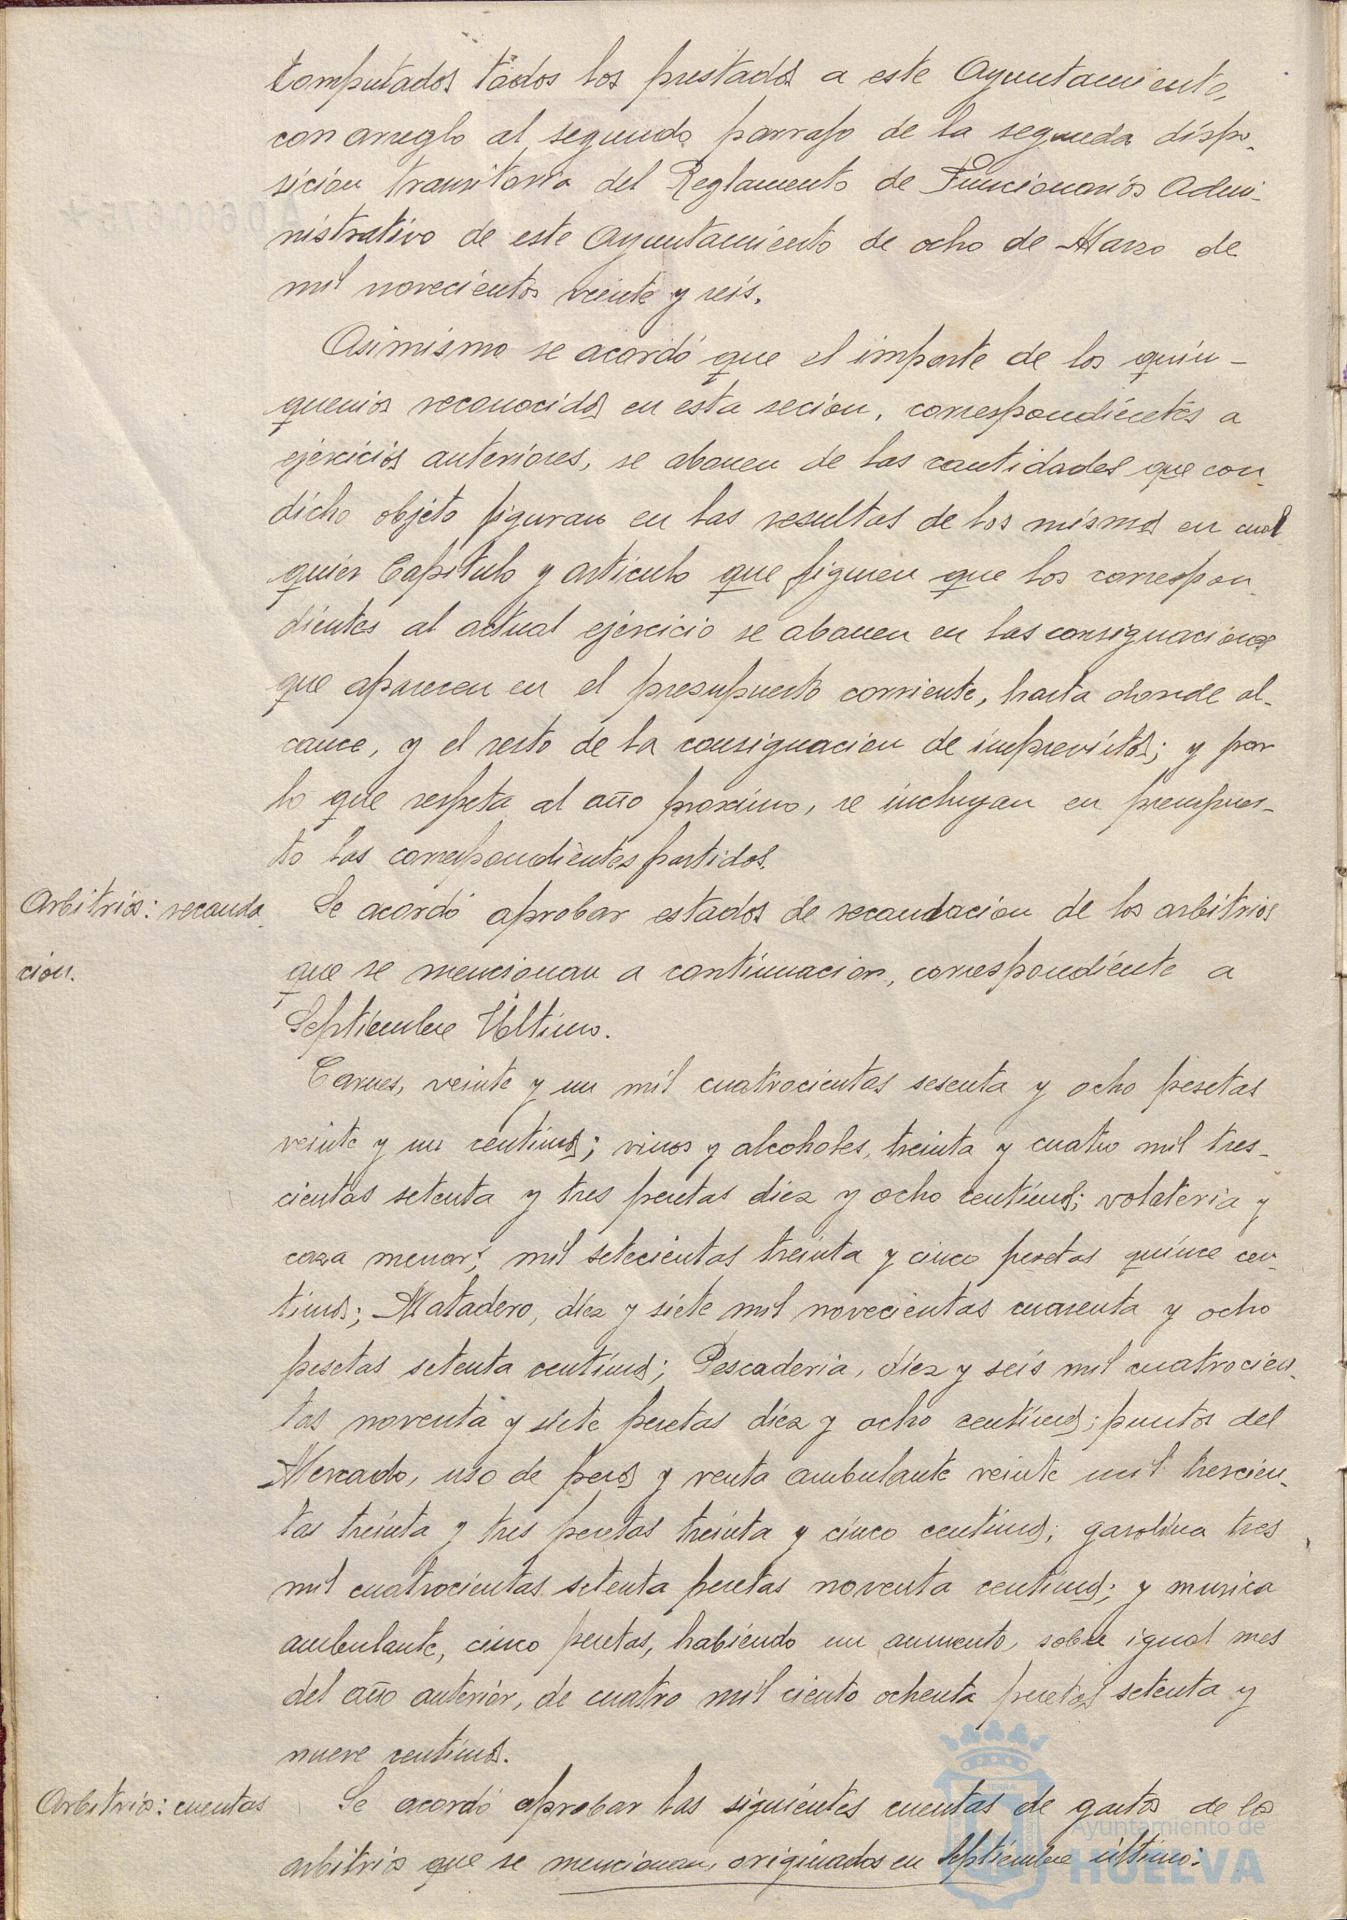 computados todos los prestados a este Ayuntamiento,
con arreglo al segundo parrafo de la segunda dispo-
sición transitoria del Reglamento de Funcionarios Admi-
nistrativo de este Ayuntamiento de ocho de Marzo de
mil novecientos veinte y seis.
Asimismo se acordó que el importe de los quin-
quenios reconocidos en esta secion, correspondientes a
ejercicios anteriores, se abonen de las cantidades que con
dicho objeto figuran en las resultas de los mismos en cual
quier Capitulo y articulo que figuren que los correspon-
dientes al actual ejercicio se abonen en las consignaciones
que aparecen en el presupuesto corriente, hasta donde al-
cance, y el resto de la consignacion de imprevistos; y por
lo que respeta al año proximo, se incluyan en presupues-
to las correspondientes partidas.
Arbitrios: recauda
ción.
Se acordó aprobar estados de recaudacion de los arbitrios
que se mencionan a continuacion, correspondiente a
Septiembre Ultimo.
Carnes, veinte y un mil cuatrocientas sesenta y ocho pesetas
veinte y un centimos; vinos y alcoholes, treinta y cuatro mil tres-
cientas setenta y tres pesetas diez y ocho centimos; volateria y
caza menor; mil setecientas treinta y cinco pesetas quince cen-
timos; Matadero, diez y siete mil novecientas cuarenta y ocho
pesetas setenta centimos; Pescaderia, diez y seis mil cuatrocien-
tas noventa y siete pesetas diez y ocho centimos; puestos del
Mercado, uso de pesos y venta ambulante veinte mil trescien-
tas treinta y tres pesetas treinta y cinco centimos; gasolina tres
mil cuatrocientas setenta pesetas noventa centimos; y musica
ambulante, cinco pesetas, habiendo un aumento, sobre igual mes
del año anterior, de cuatro mil ciento ochenta pesetas setenta y
nueve centimos.
Arbitrios: cuentas
Se acordó aprobar las siguientes cuentas de gastos de los
arbitrios que se mencionan, originados en Septiembre último:
Ayuntamiento de
HUELVA